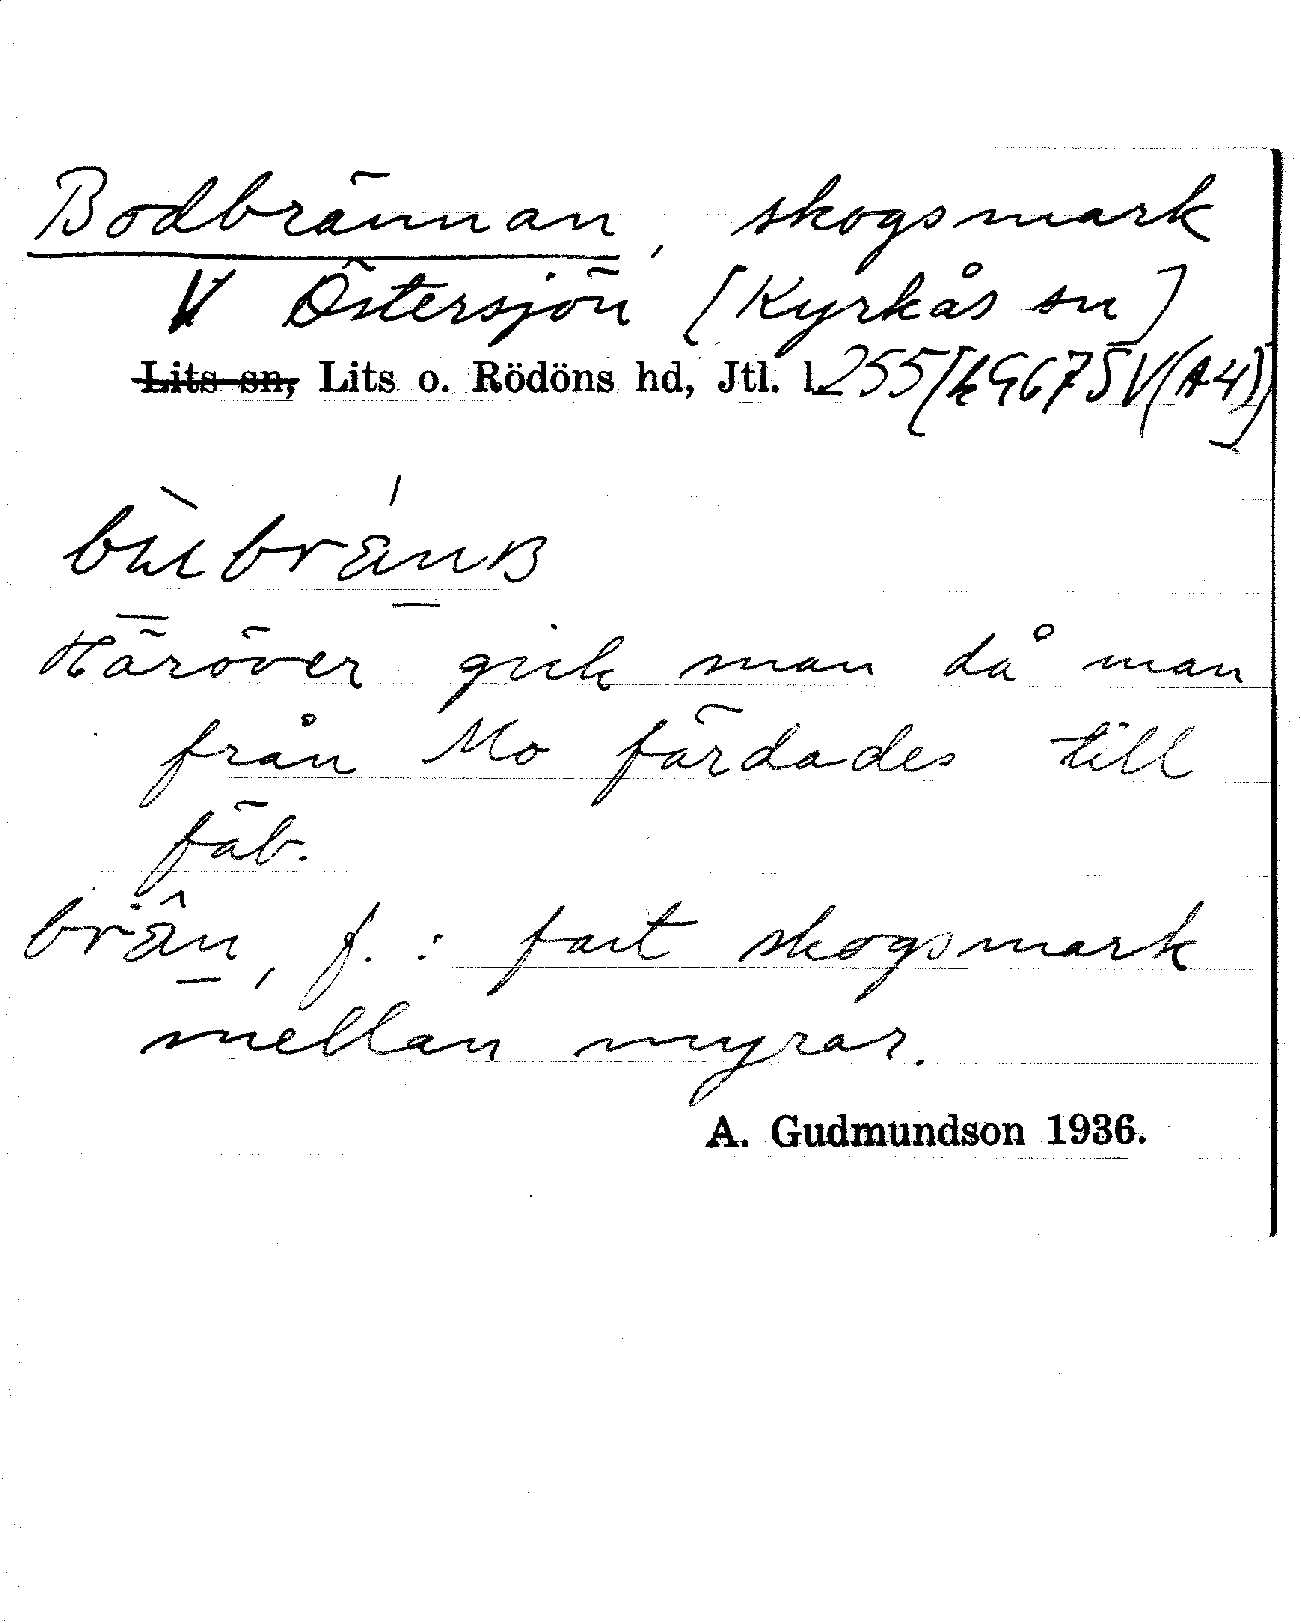 Bodbrännan, skogsmark
V Östersjön [Kyrkås sn]
Lits sn, Lits o. Rödöns hd, Jtl. l. 255 [k 9675 V (A4)]
Häröver gick man då man
från Mo färdades till
fäb.
brän, f. : fast skogsmark
mellan myrar.
A. Gudmundson 1936.